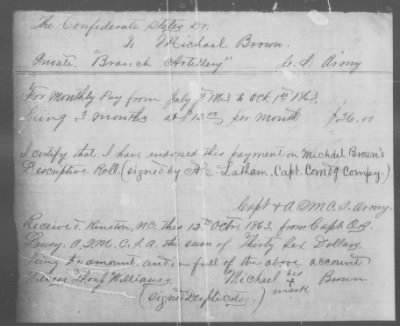 The Confederate States Dr.
To Michael Brown.
Private "Branch Artillery" C. S. Army
For Monthly Pay from July 1st 1863 to Oct. 1st 1863.
being 3 months at $12.00 per month $36.00
I certify that I have endorsed this payment on Michael Brown's
Descriptive Roll (signed by A. C. Latham, Capt. Comd'g Compy.)
Capt & A Q M C. S. Army.
Received, Kinston, N.C. this 13th Octr. 1863, from Capt
A. Q. M. C. S. A. the sum of Thirty Six Dollars,
being in amount, and in full of the above account
Witness Williams Michael his x mark Brown
(Signed Duplicates)